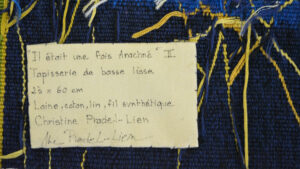 Il était une fois Arachné" II
tapisserie de basse lisse
25 x 60 cm
Laine, coton, lin, fil synthétique
Christine Pradel-Lien
Pradel-Lien